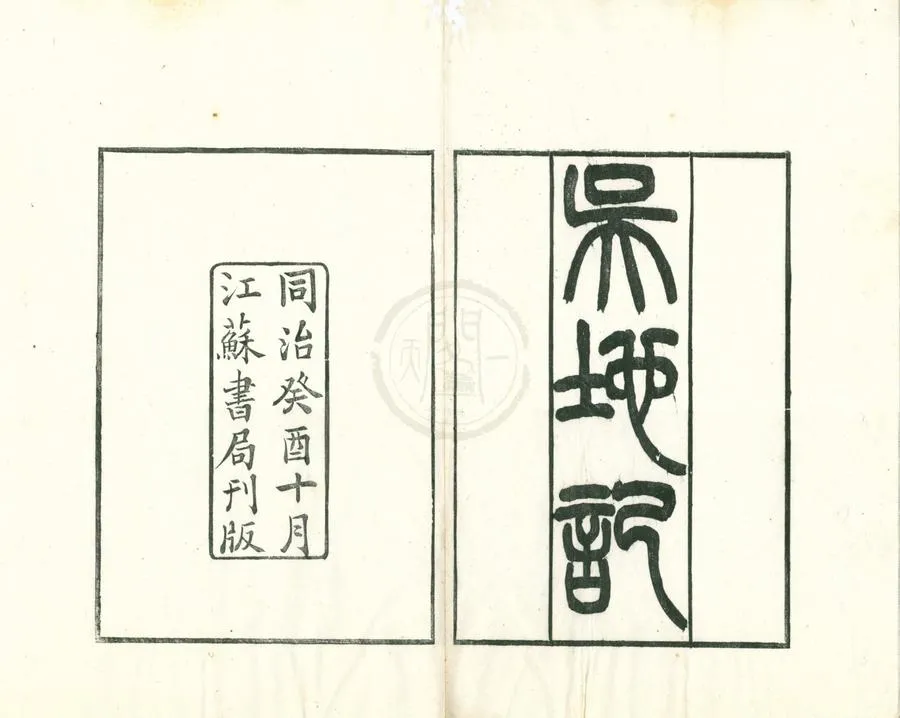 吴地記
同治癸酉十月
江蘇書局刊版